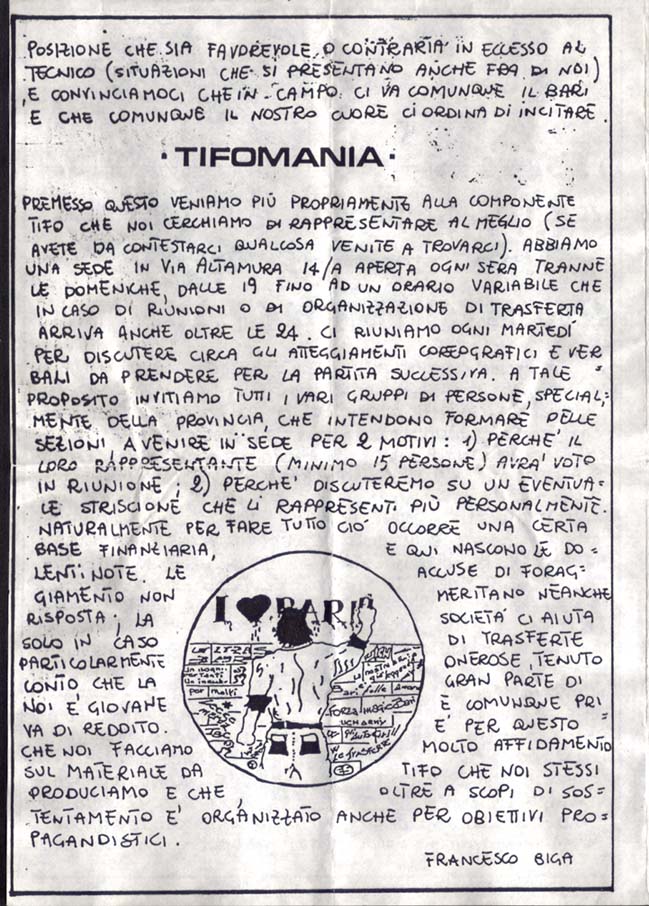 POSIZIONE CHE SIA FAVOREVOLE O CONTRARIA IN ECCESSO AL
TECNICO (SITUAZIONI CHE SI PRESENTANO ANCHE FRA DI NOI)
E CONVINCIAMOCI CHE IN CAMPO CI VA COMUNQUE IL BARI
E CHE COMUNQUE IL NOSTRO CUORE CI ORDINA DI INCITARE.
·TIFOMANIA·
PREMESSO QUESTO VENIAMO PIÙ PROPRIAMENTE ALLA COMPONENTE
TIFO CHE NOI CERCHIAMO DI RAPPRESENTARE AL MEGLIO (SE
AVETE DA CONTESTARCI QUALCOSA VENITE A TROVARCI). ABBIAMO
UNA SEDE IN VIA ALTAMURA 14/A APERTA OGNI SERA TRANNE
LE DOMENICHE, DALLE 19 FINO AD UN ORARIO VARIABILE CHE
IN CASO DI RIUNIONI O DI ORGANIZZAZIONE DI TRASFERTA
ARRIVA ANCHE OLTRE LE 24. CI RIUNIAMO OGNI MARTEDÍ
PER DISCUTERE CIRCA GLI ATTEGGIAMENTI COREOGRAFICI E VER=
BALI DA PRENDERE PER LA PARTITA SUCCESSIVA. A TALE
PROPOSITO INVITIAMO TUTTI I VARI GRUPPI DI PERSONE, SPECIAL=
MENTE DELLA PROVINCIA, CHE INTENDONO FORMARE DELLE
SEZIONI A VENIRE IN SEDE PER 2 MOTIVI: 1) PERCHE' IL
LORO RAPPRESENTANTE (MINIMO 15 PERSONE) AVRA' VOTO
IN RIUNIONE; 2) PERCHE' DISCUTEREMO SU UN EVENTUA=
LE STRISCIONE CHE LI RAPPRESENTI PIÙ PERSONALMENTE.
NATURALMENTE PER FARE TUTTO CIO' OCCORRE UNA CERTA
BASE FINANZIARIA, E QUI NASCONO LE DO=
LENTI NOTE. LE ACCUSE DI FORAG=
GIAMENTO NON MERITANO NEANCHE
RISPOSTA; LA SOCIETA' CI AIUTA
SOLO IN CASO DI TRASFERTE
PARTICOLARMENTE ONEROSE, TENUTO
CONTO CHE LA GRAN PARTE DI
NOI E' GIOVANE E COMUNQUE PRI
VA DI REDDITO. E' PER QUESTO
CHE NOI FACCIAMO MOLTO AFFIDAMENTO
SUL MATERIALE DA TIFO CHE NOI STESSI
PRODUCIAMO E CHE, OLTRE A SCOPI DI SOS=
TENTAMENTO E' ORGANIZZATO ANCHE PER OBIETTIVI PRO=
PAGANDISTICI.
FRANCESCO BIGA
I ♥ BARI
per molti
FORZA magico Bari